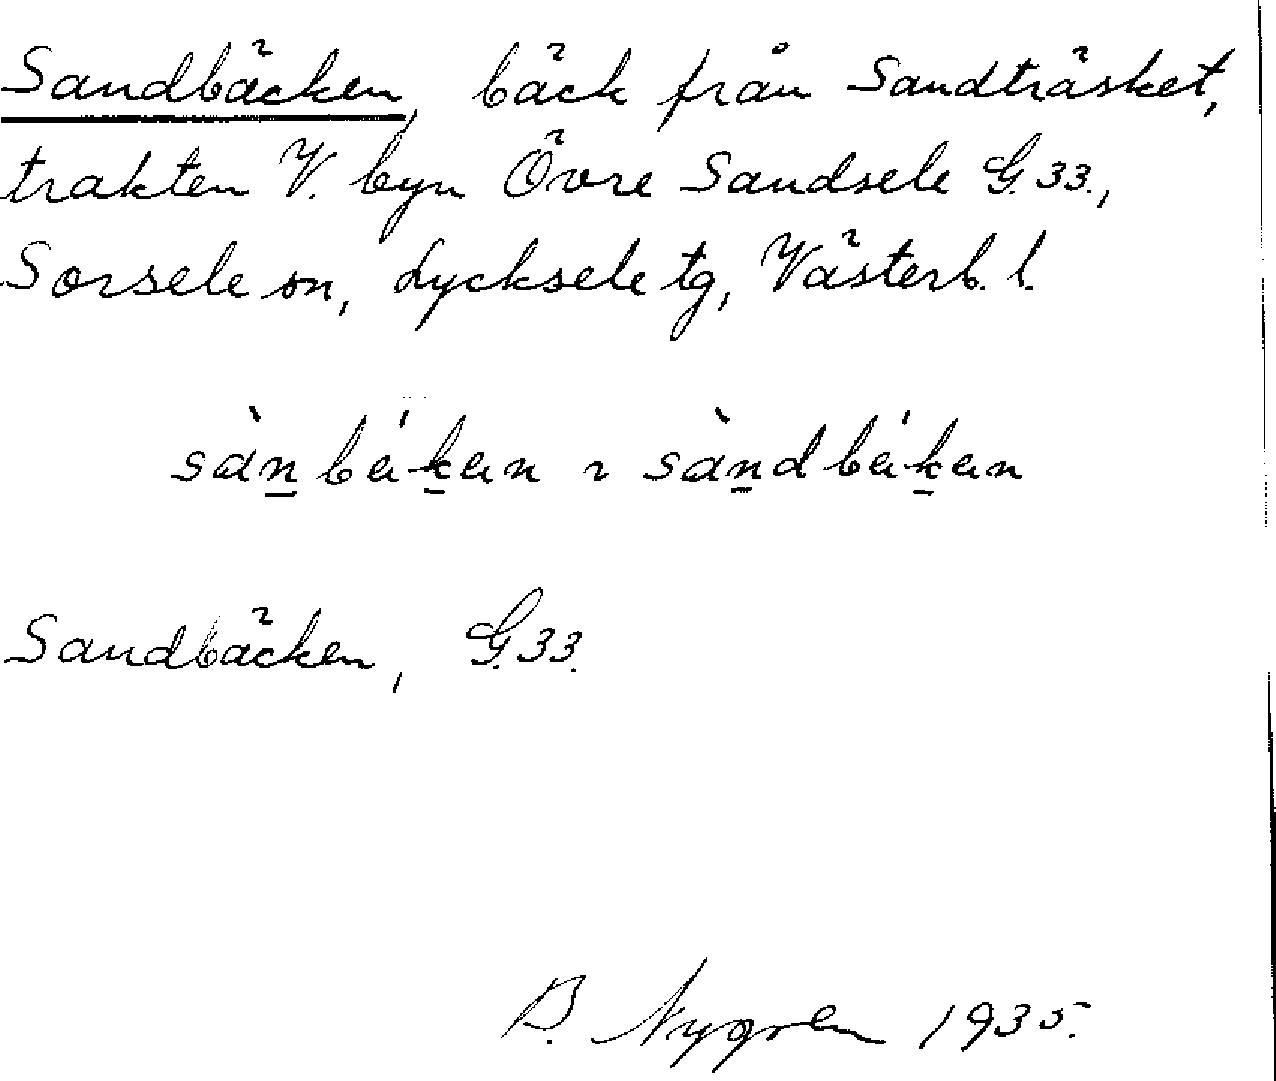 Sandbäcken, bäck från Sandträsket,
trakten V. byn Övre Sandsele G. 33.,
Sorsele sn, Lycksele tg, Västerb. l.
sànbákan ~ sàndbákan
Sandbäcken, G. 33.
B. Nygren 1935.